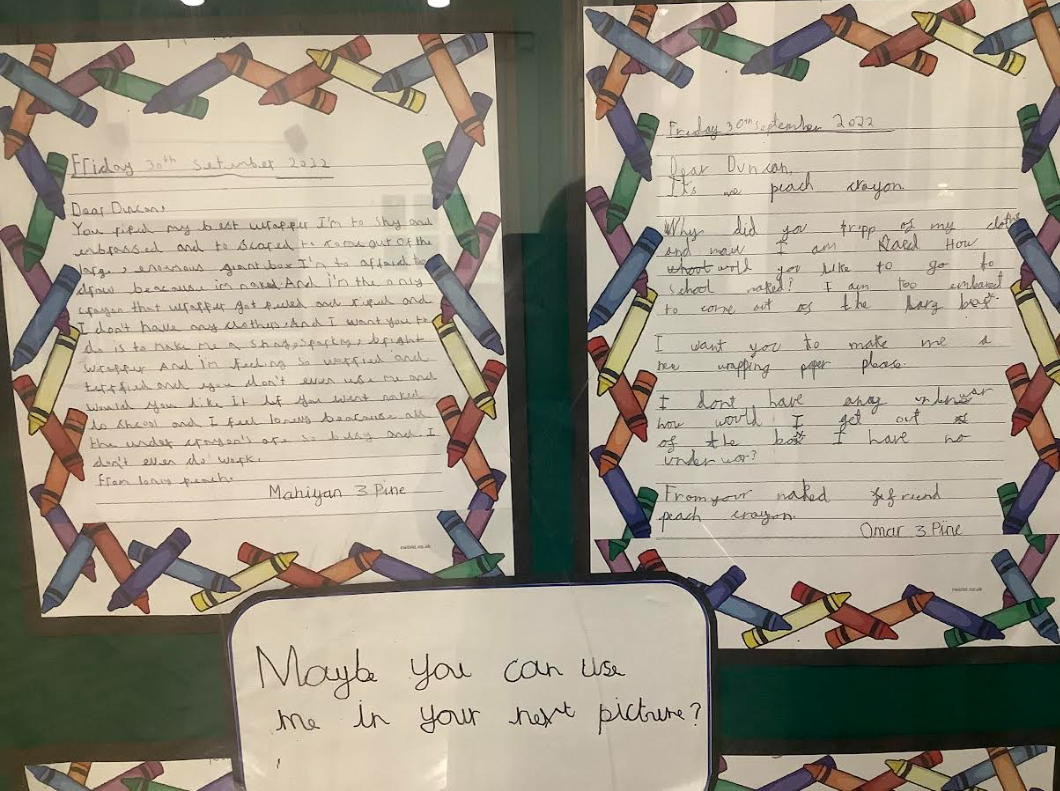 Friday 30th Setember 2022
Dear Duncan,
You riped my best wrapper I'm to shy and
enbrassed and to scared to come out of the
large, enormous giant box I'm to affraid to
draw beacause im naked. And i'm the only
crayon that wrapper got peeled and riped and
I don't have any clothes. And I want you to
do is to make me a shiny, sparkley, bright
wrapper And I'm feeling so worried and
terrified and you don't even use me and
would you like it if you went naked
to school and I feel lonely beacause all
the under crayon's are so busy and I
don't even do work.
from lonly peach.
Mahiyan 3 Pine
Friday 30th september 2022
Dear Duncan,
It's me peach crayon.
Why did you tripp of my cloths
and now I am Naced How
would you like to go to
school naked? I am too embarest
to come out of the larg box.
I want you to make me a
new wrapping paper please.
I dont have anay underwar
how would I get out
of the box I have no
under war?
From your naked friend
peach crayon.
Omar 3 Pine
Maybe you can use
me in your next picture?